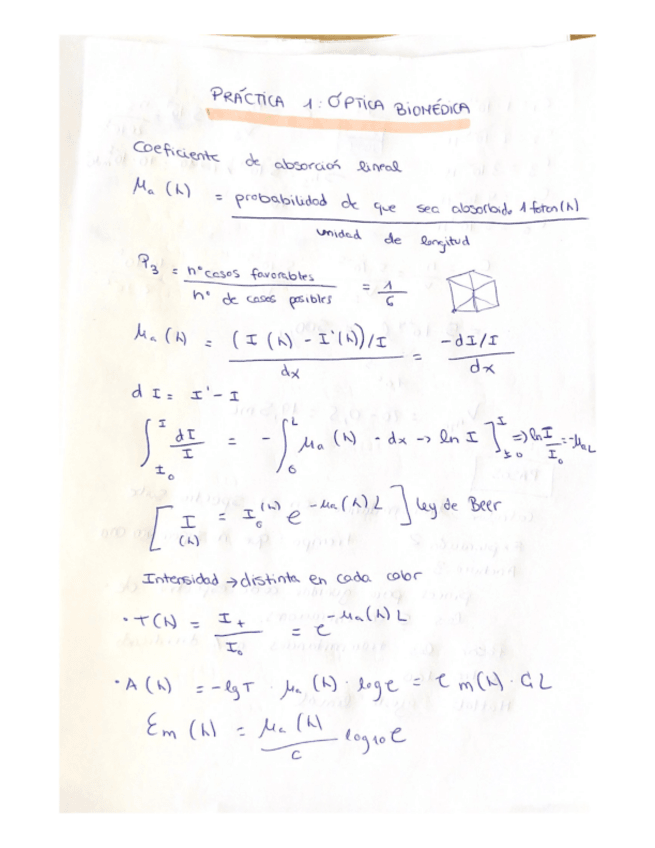 PRÁCTICA 1: ÓPTICA BIOMÉDICA
Coeficiente de absorción lineal
μa (λ) = probabilidad de que sea absorbido 1 foton (λ) / unidad de longitud
P3 = nº casos favorables / nº de casos posibles = 1/6
μa (λ) = (I (λ) - I'(λ))/I / dx = -dI/I / dx
dI = I' - I
∫_{I0}^{I} dI/I = - ∫_{0}^{L} μa (λ) · dx → ln I ]_{I0}^{I} ⇒ ln I/I0 = -μa L
[ I (λ) = I0 (λ) e^{-μa (λ) L} ] Ley de Beer
Intensidad → distinta en cada color
· T(λ) = I+ / I0 = e^{-μa (λ) L}
· A (λ) = -lg T · μa (λ) · log e = ε m (λ) · C L
Em (λ) = μa (λ) / C log10 e